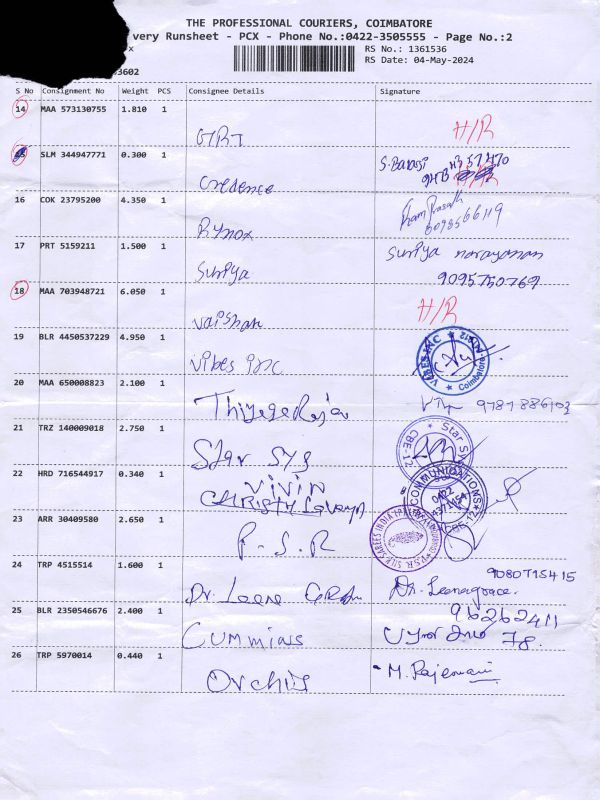 THE PROFESSIONAL COURIERS, COIMBATORE
very Runsheet - PCX - Phone No.:0422-3505555 - Page No.:2
x
RS No.: 1361536
RS Date: 04-May-2024
3602
S No Consignment No Weight PCS Consignee Details Signature
14 MAA 573130755 1.810 1
GRT H/R
SLM 344947771 0.300 1
Credence
16 COK 23795200 4.350 1
Rynox
17 PRT 5159211 1.500 1
Suriya Suriya narayanan
9095750769
18 MAA 703948721 6.050 1
Vaishnav H/R
19 BLR 4450537229 4.950 1
Vibes inc VIBES INC Coimbatore
20 MAA 650008823 2.100 1
9787886103
21 TRZ 140009018 2.750 1
Star sys Star CBE-12
22 HRD 716544917 0.340 1
VIVIN
COMMUNICATIONS
0422
4371454
CBE-12
23 ARR 30409580 2.650 1
P-S-R
24 TRP 4515514 1.600 1
9080715415
Dr. Leena Dr. Leenagrace.
25 BLR 2350546676 2.400 1
96262411
CUMMINS 78
26 TRP 5970014 0.440 1
Orchis M. Rajeswari